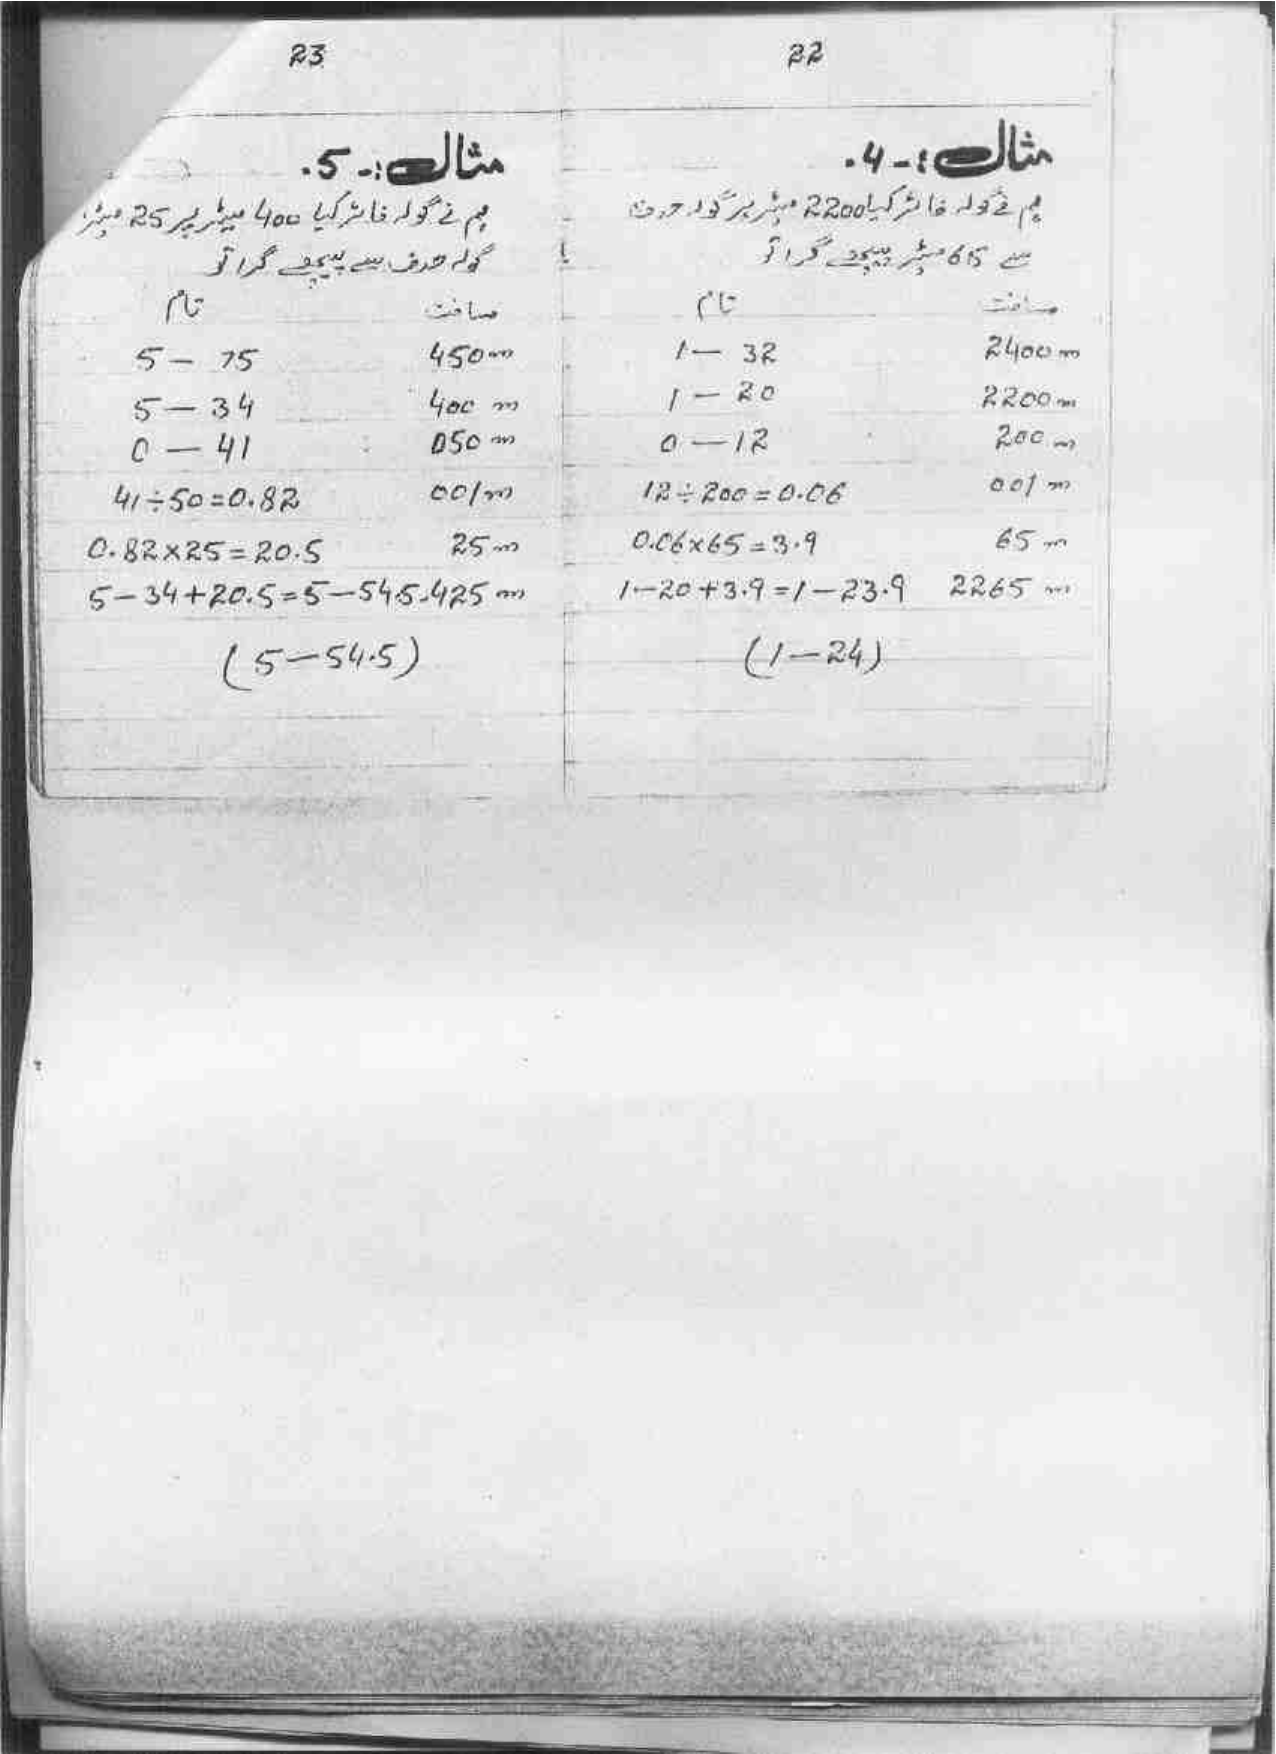 22
مثال :- 4.
ہم نے گولہ فائر کیا 2200 میٹر پر گولہ حدف
سے 65 میٹر پیچھے گرا تو
مسافت تام
2400m 1 – 32
2200m 1 – 20
200m 0 – 12
001m 12÷200=0.06
65m 0.06×65=3.9
2265m 1–20+3.9=1–23.9
(1–24)
23
مثال :- 5.
ہم نے گولہ فائر کیا 400 میٹر پر 25 میٹر
گولہ حدف سے پیچھے گرا تو
مسافت تام
450m 5 – 75
400m 5 – 34
050m 0 – 41
001m 41÷50=0.82
25m 0.82×25=20.5
425m 5–34+20.5=5–54.5
(5–54.5)